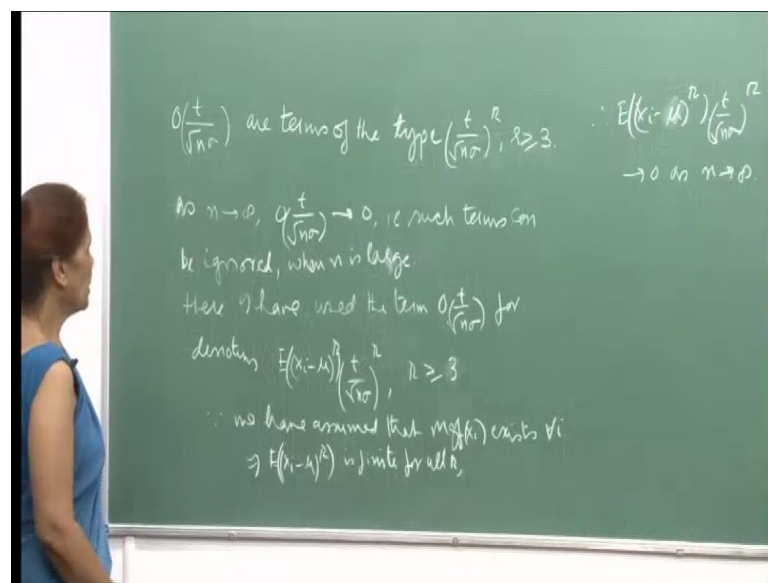 O(t/√nσ) are terms of the type (t/√nσ)^r, r≥3.
As n→∞, O(t/√nσ)→0, ie such terms can
be ignored, when n is large.
Here I have used the term O(t/√nσ) for
denoting E((xi-μ)^r)(t/√nσ)^r, r≥3
∵ we have assumed that mgf(xi) exists ∀i
⇒ E((xi-μ)^r) is finite for all r,
∴ E((xi-μ)^r)(t/√nσ)^r
→0 as n→∞.